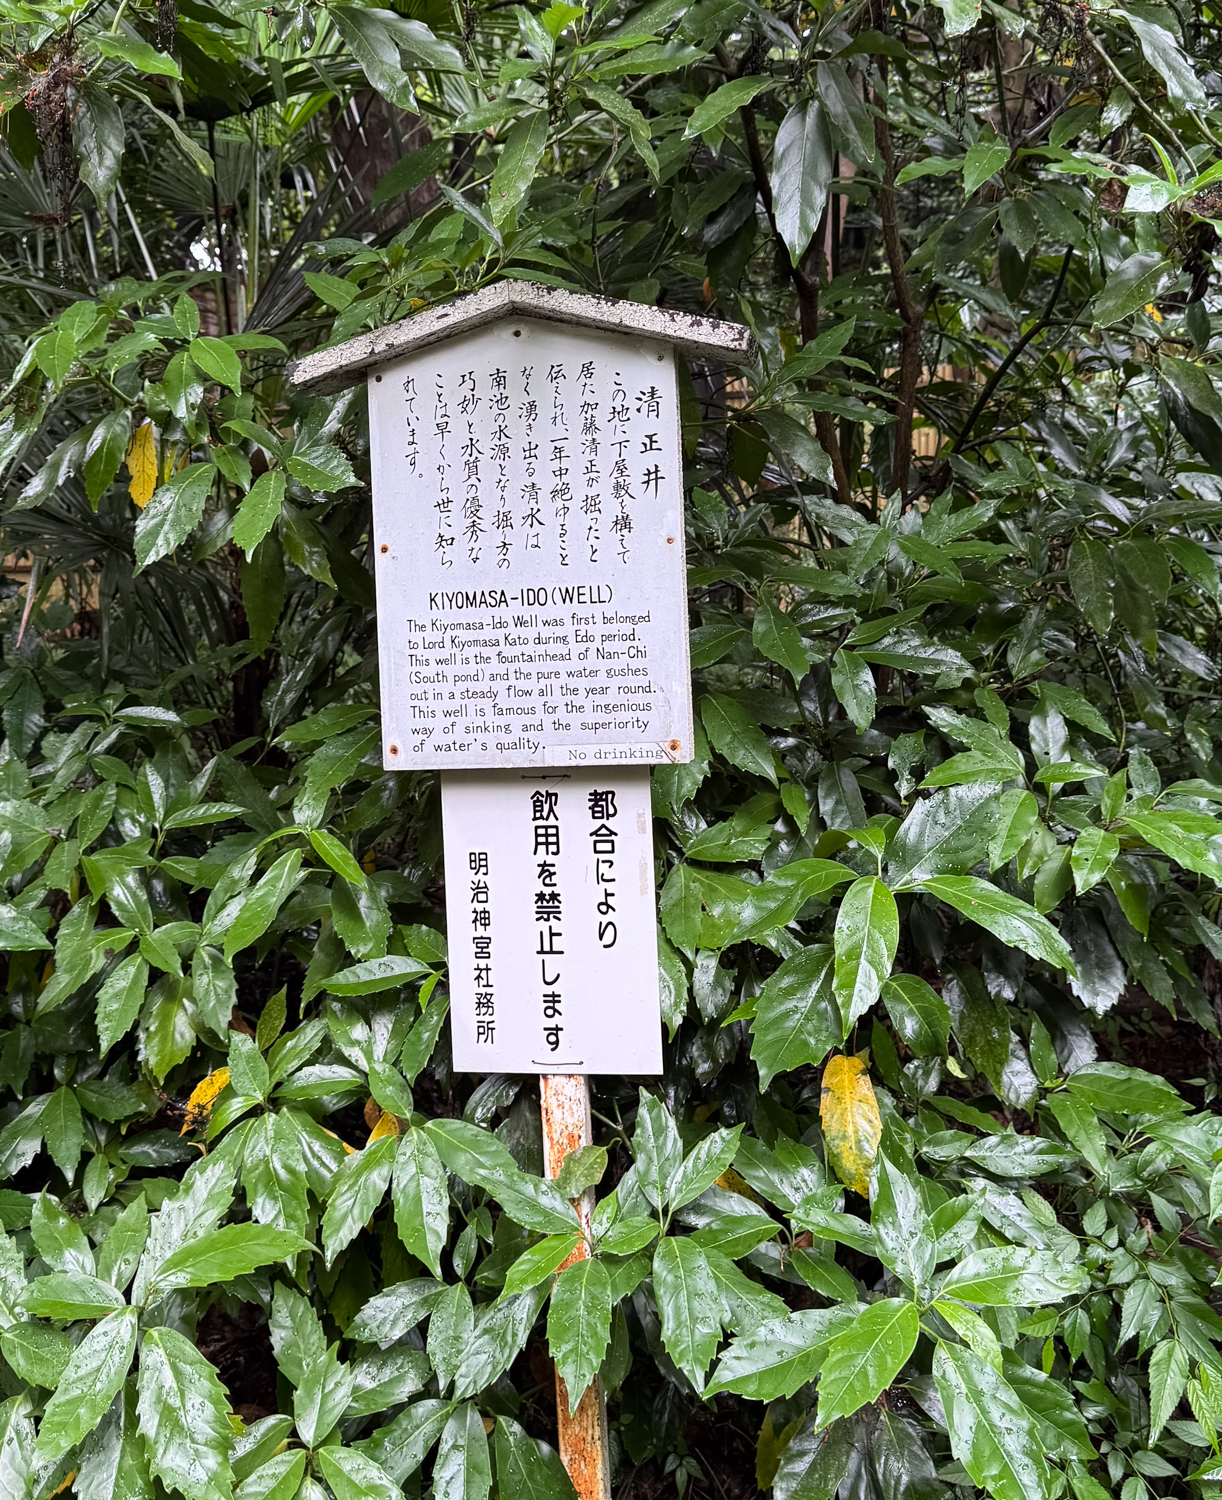 清正井
この地に下屋敷を構えて
居た加藤清正が掘ったと
伝えられ、一年中絶ゆること
なく湧き出る清水は
南池の水源となり掘り方の
巧妙と水質の優秀な
ことは早くから世に知ら
れています。
KIYOMASA-IDO(WELL)
The Kiyomasa-Ido Well was first belonged
to Lord Kiyomasa Kato during Edo period.
This well is the fountainhead of Nan-Chi
(South pond) and the pure water gushes
out in a steady flow all the year round.
This well is famous for the ingenious
way of sinking and the superiority
of water's quality.
No drinking
都合により
飲用を禁止します
明治神宮社務所